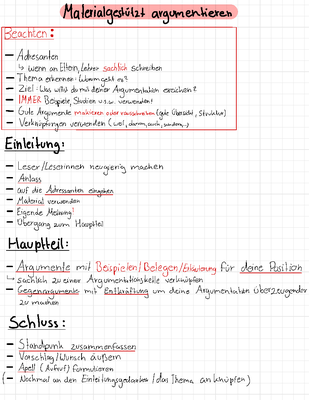 Materialgestützt argumentieren
Beachten:
— Adresanten
↳ wenn an Eltern, Lehrer sachlich schreiben
— Thema erkennen: Worum geht es?
— Ziel: Was willst du mit deiner Argumentation erreichen?
— IMMER Beispiele, Studien u.s.w. verwenden!
— Gute Argumente makieren oder rausschreiben (gute Übersicht, Struktur)
— Verknüpfungen verwenden (weil, darum, auch, sondern,...)
Einleitung:
— Leser/Leserinnen neugierig machen
— Anlass
— auf die Adressanten eingehen
— Material verwenden
— Eigende Meinung!
— Übergang zum Hauptteil
Hauptteil:
— Argumente mit Beispielen/Belegen/Erläuterung für deine Position
↳ sachlich zu einer Argumentationskette verknüpfen
— Gegenargumente mit Entkräftung um deine Argumentation überzeugender
zu machen
Schluss:
— Standpunk zusammenfassen
— Vorschlag/Wunsch äußern
— Apell (Aufruf) formulieren
(— Nochmal an den Einleitungsgedanken/das Thema anknüpfen)